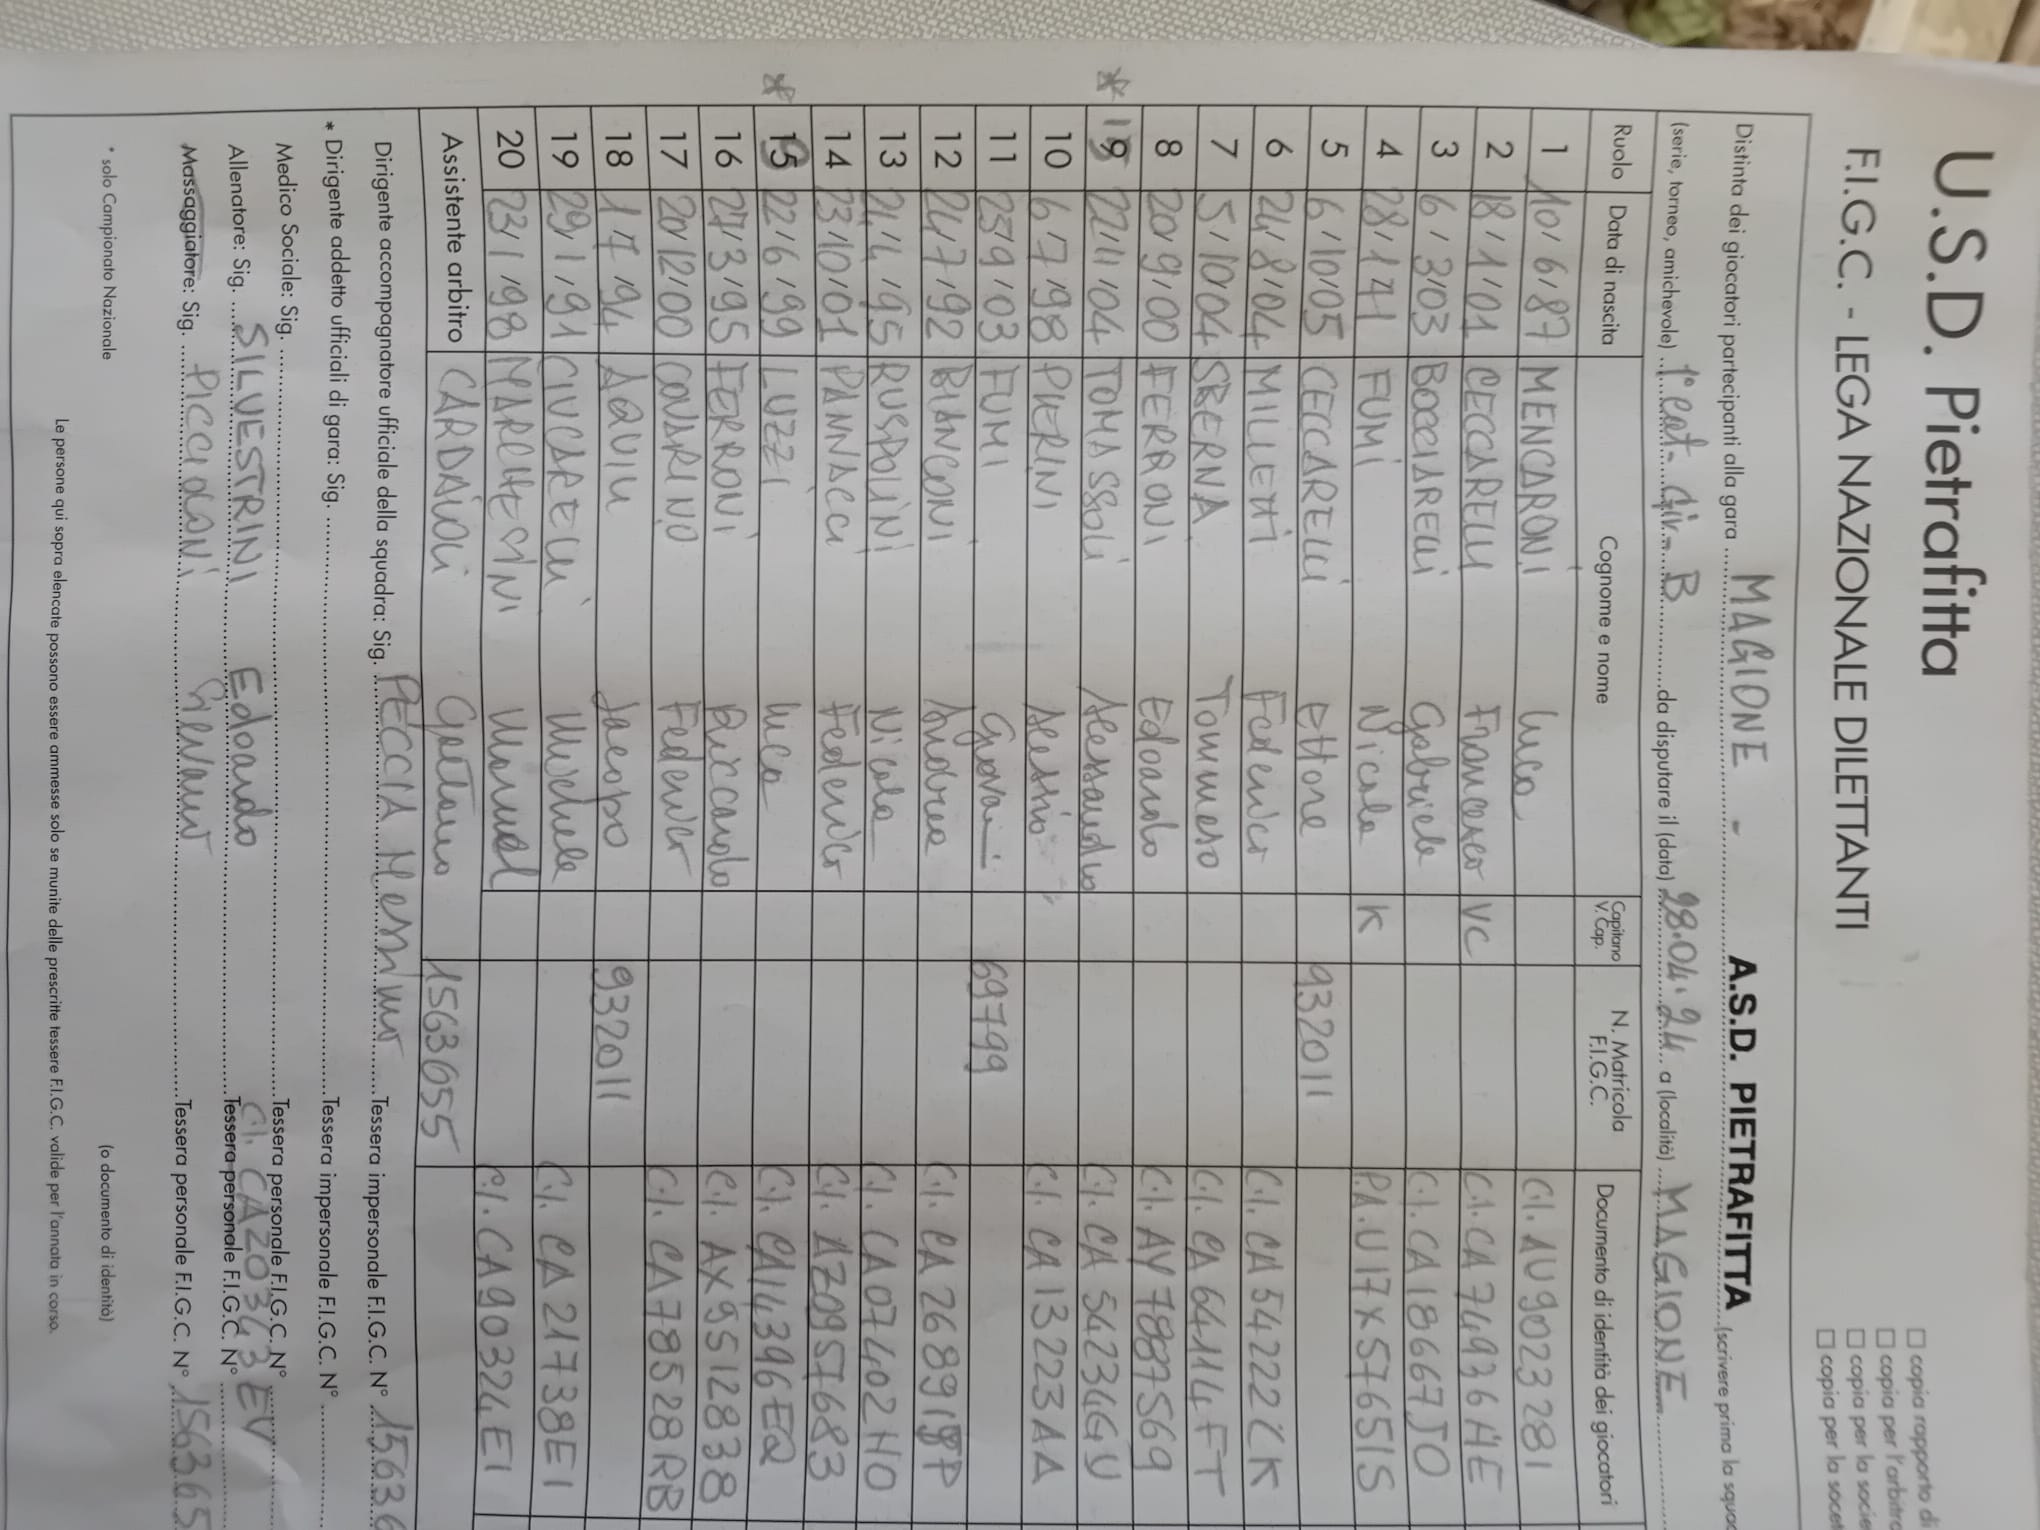 U.S.D. Pietrafitta
F.I.G.C. - LEGA NAZIONALE DILETTANTI
□ copia rapporto di
□ copia per l'arbitro
□ copia per la socie
□ copia per la societ
Distinta dei giocatori partecipanti alla gara MAGIONE - A.S.D. PIETRAFITTA (scrivere prima la squad
(serie, torneo, amichevole) 1° cat. Gir. B da disputare il (data) 28.04.24 a (località) MAGIONE
Ruolo Data di nascita Cognome e nome Capitano V.Cap. N. Matricola F.I.G.C. Documento di identità dei giocatori
1 10/6/87 MENCARONI Luca C.I. AU9023281
2 18/1/01 CECCARELLI Francesco VC C.I. CA74936HE
3 6/3/03 BOCCIARELLI Gabriele C.I. CA18667JO
4 28/1/71 FUMI Nicola K PA. U17X5765IS
5 6/10/05 CECCARELLI Ettore 932011
6 24/8/04 MILLETTI Federico C.I. CA54222CK
7 5/10/04 SBERNA Tommaso C.I. CA64114FT
8 20/9/00 FERRONI Edoardo C.I. AY7887569
* 22/11/04 TOMASSOLI Alessandro C.I. CA54234GU
10 6/7/98 PIERINI Alessio C.I. CA13223AA
11 25/9/03 FUMI Giovanni 69799
12 24/7/92 BIANCONI Andrea
13 24/4/95 RUSPOLINI Nicola C.I. CA07402HO
14 23/10/01 PANNACCI Federico C.I. AZ0957683
* 22/6/99 LUZZI Luca C.I. CA14396EQ
16 27/3/95 FERRONI Riccardo C.I. AX5512838
17 20/12/00 COVARINO Federico C.I. CA78528RB
18 1/7/94 AQUILI Jacopo 932011
19 29/1/91 CIUCARELLI Michele C.I. CA21738EI
20 23/1/98 MARCHESINI Manuel C.I. CA90324EI
Assistente arbitro CARDAIOLI Gaetano 1563655
Dirigente accompagnatore ufficiale della squadra: Sig. PECCIA Massimo Tessera impersonale F.I.G.C. N° 15636
* Dirigente addetto ufficiali di gara: Sig. Tessera impersonale F.I.G.C. N°
Medico Sociale: Sig. Tessera personale F.I.G.C. N°
Allenatore: Sig. SILVESTRINI Edoardo Tessera personale F.I.G.C. N° C.I. CA20343EV
Massaggiatore: Sig. PICCIOLONI Tessera personale F.I.G.C. N° 156365
* solo Campionato Nazionale (o documento di identità)
Le persone qui sopra elencate possono essere ammesse solo se munite delle prescritte tessere F.I.G.C. valide per l'annata in corso.